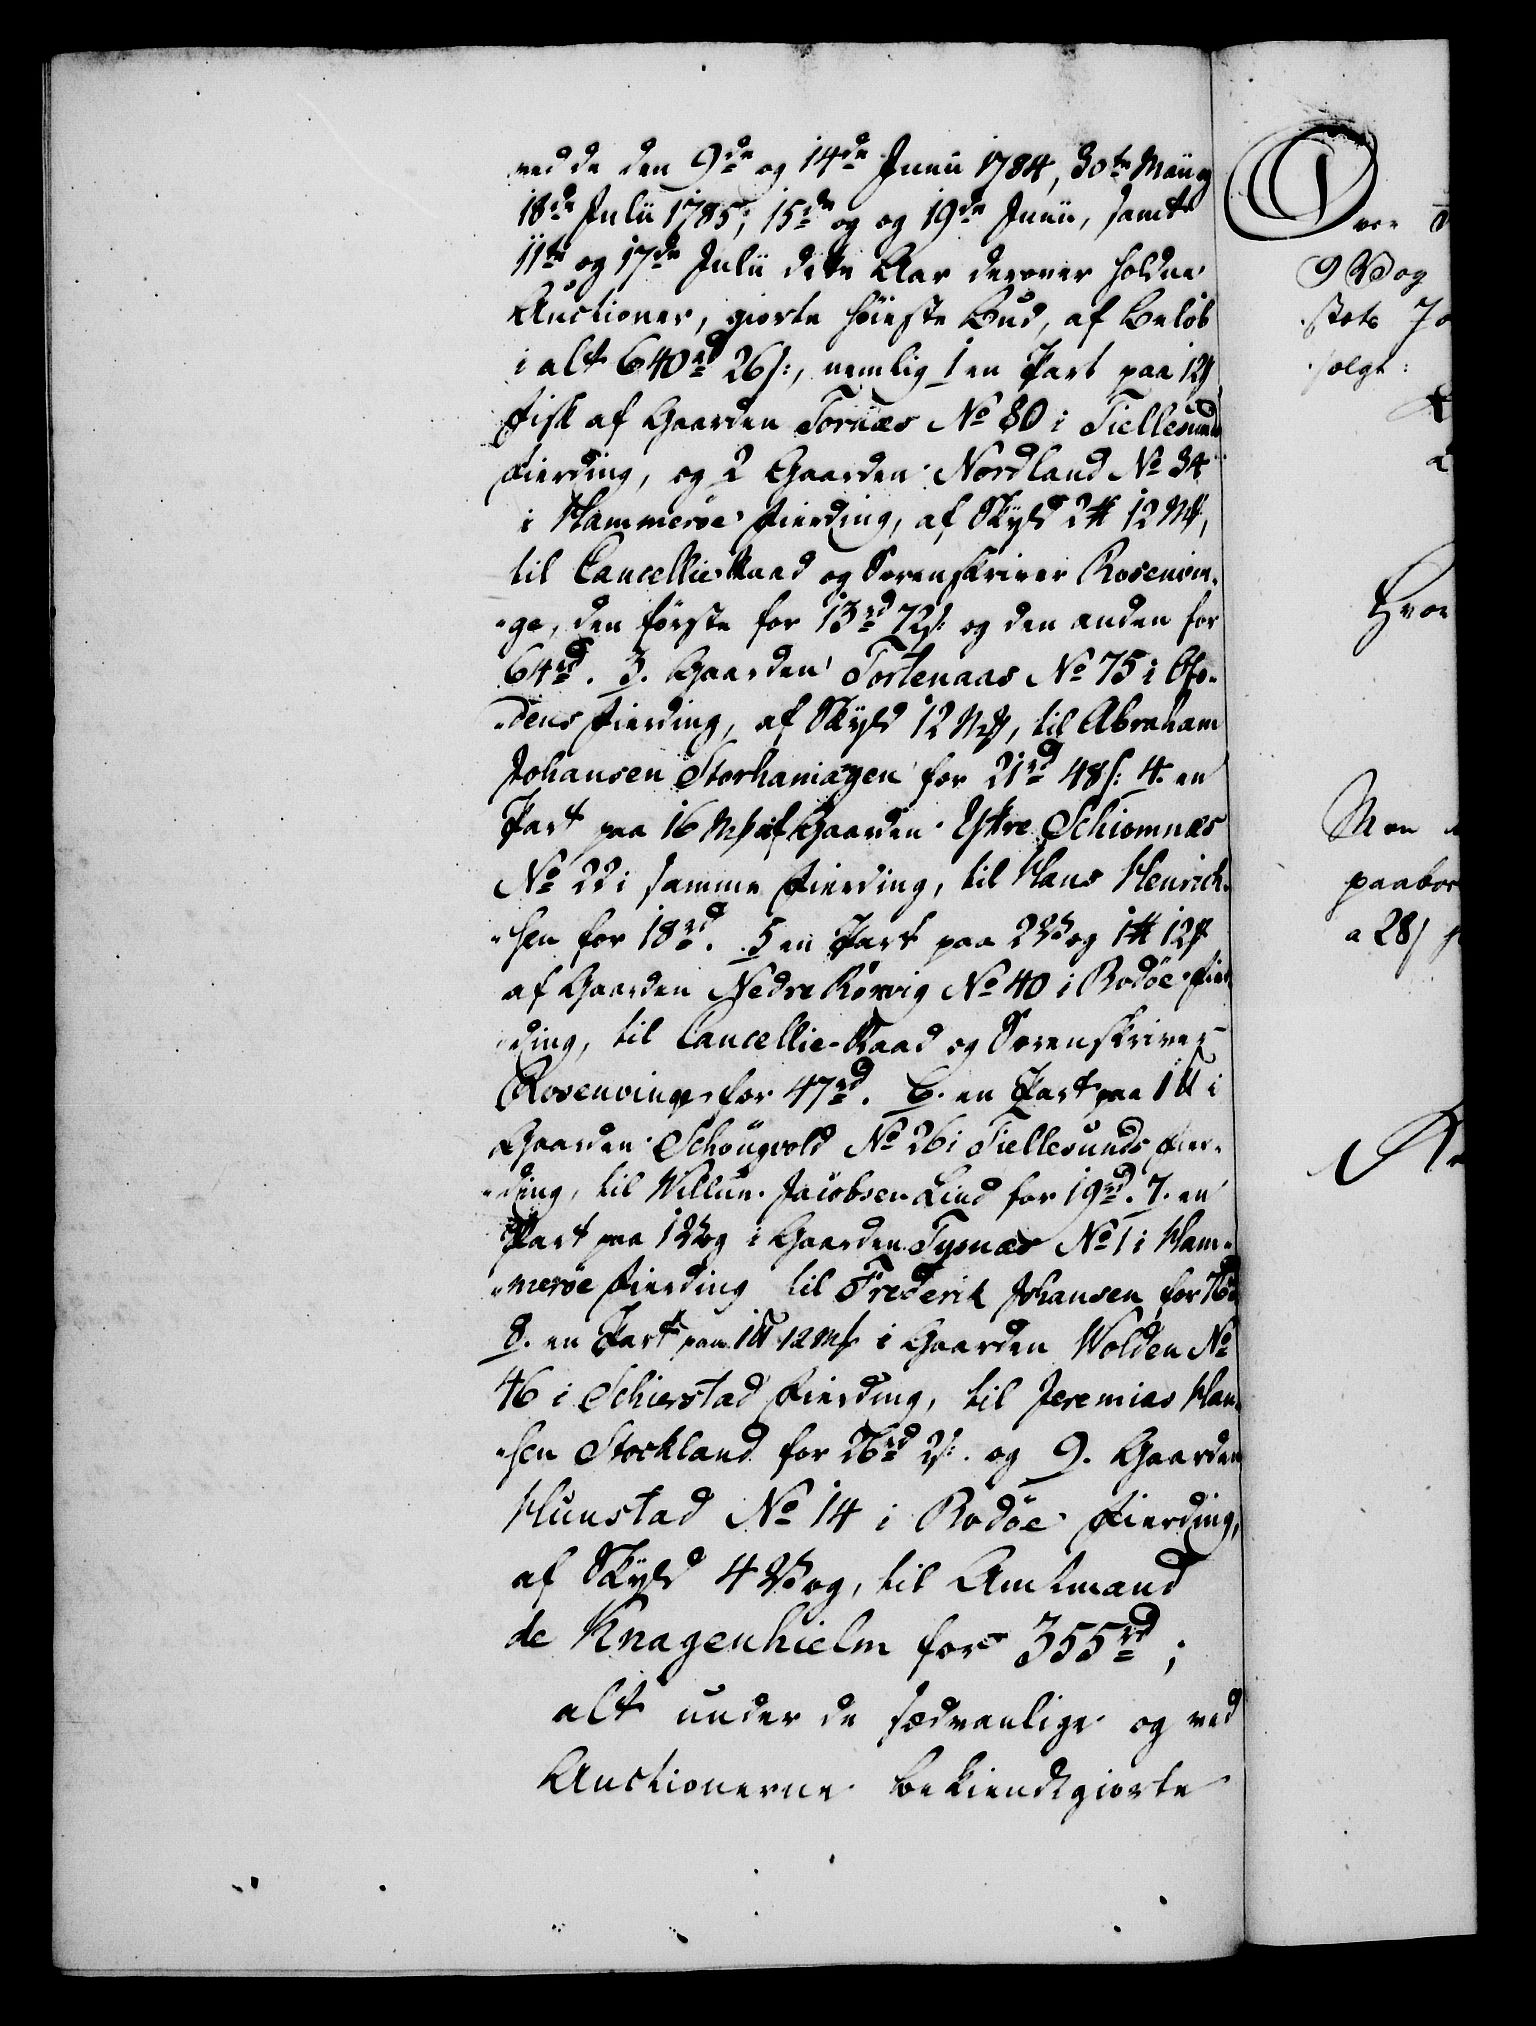 ved de den 9de og 14de Junii 1784, 30te Maii og
18de Julii 1785; 15de og og 19de Junii, samt
11te og 17de Julii dette Aar derover holdne
Auctioner, giorte høieste Bud, af Beløb
i alt 640rd 26s:, nemlig 1 en Part paa 12
Fisk af Gaarden Tornæs No 80 i Fiellesunds
Fierding, og 2 Gaarden Nordland No 34
i Hammerøe Fierding, af Skyld 2 12 Mk,
til Cancellie-Raad og Sorenskriver Rosenvin-
-ge, den første for 13rd 72s: og den anden for
64rd. 3. Gaarden Tortenaas No 75 i Ofo-
-dens Fierding, af Skyld 12 Mk, til Abraham
Johansen Storhamagen for 21rd 48s: 4. en
Part paa 16 Mk af Gaarden Østre Schiomnæs
No 22 i samme Fierding, til Hans Henrich-
-sen for 18rd. 5 en Part paa 2 Vog 1 12
af Gaarden Nedre Rørvig No 40 i Bodøe Fier-
-ding, til Cancellie-Raad og Sorenskriver
Rosenvinge for 47rd. 6. en Part paa 1 i
Gaarden Schougvold No 26 i Fiellesunds Fier-
-ding, til Willum Jacobsen Lind for 19rd. 7. en
Part paa 1 Vog i Gaarden Tysnæs No 1 i Ham-
-merøe Fierding til Frederik Johansen for 76rd
8. en Part paa 1 12 Mk i Gaarden Wolden No
46 i Schierstad Fierding, til Jeremias Han-
-sen Stockland for 26rd 2s: og 9. Gaarden
Hunstad No 14 i Bodøe Fierding,
af Skyld 4 Vog, til Amtmand
de Knagenhielm for 355rd;
alt under de sædvanlige og ved
Auctionerne bekiendtgiorte
Over
9 Vog
stets Jo
solgt:
Hvor
Men
paabor
a 28s